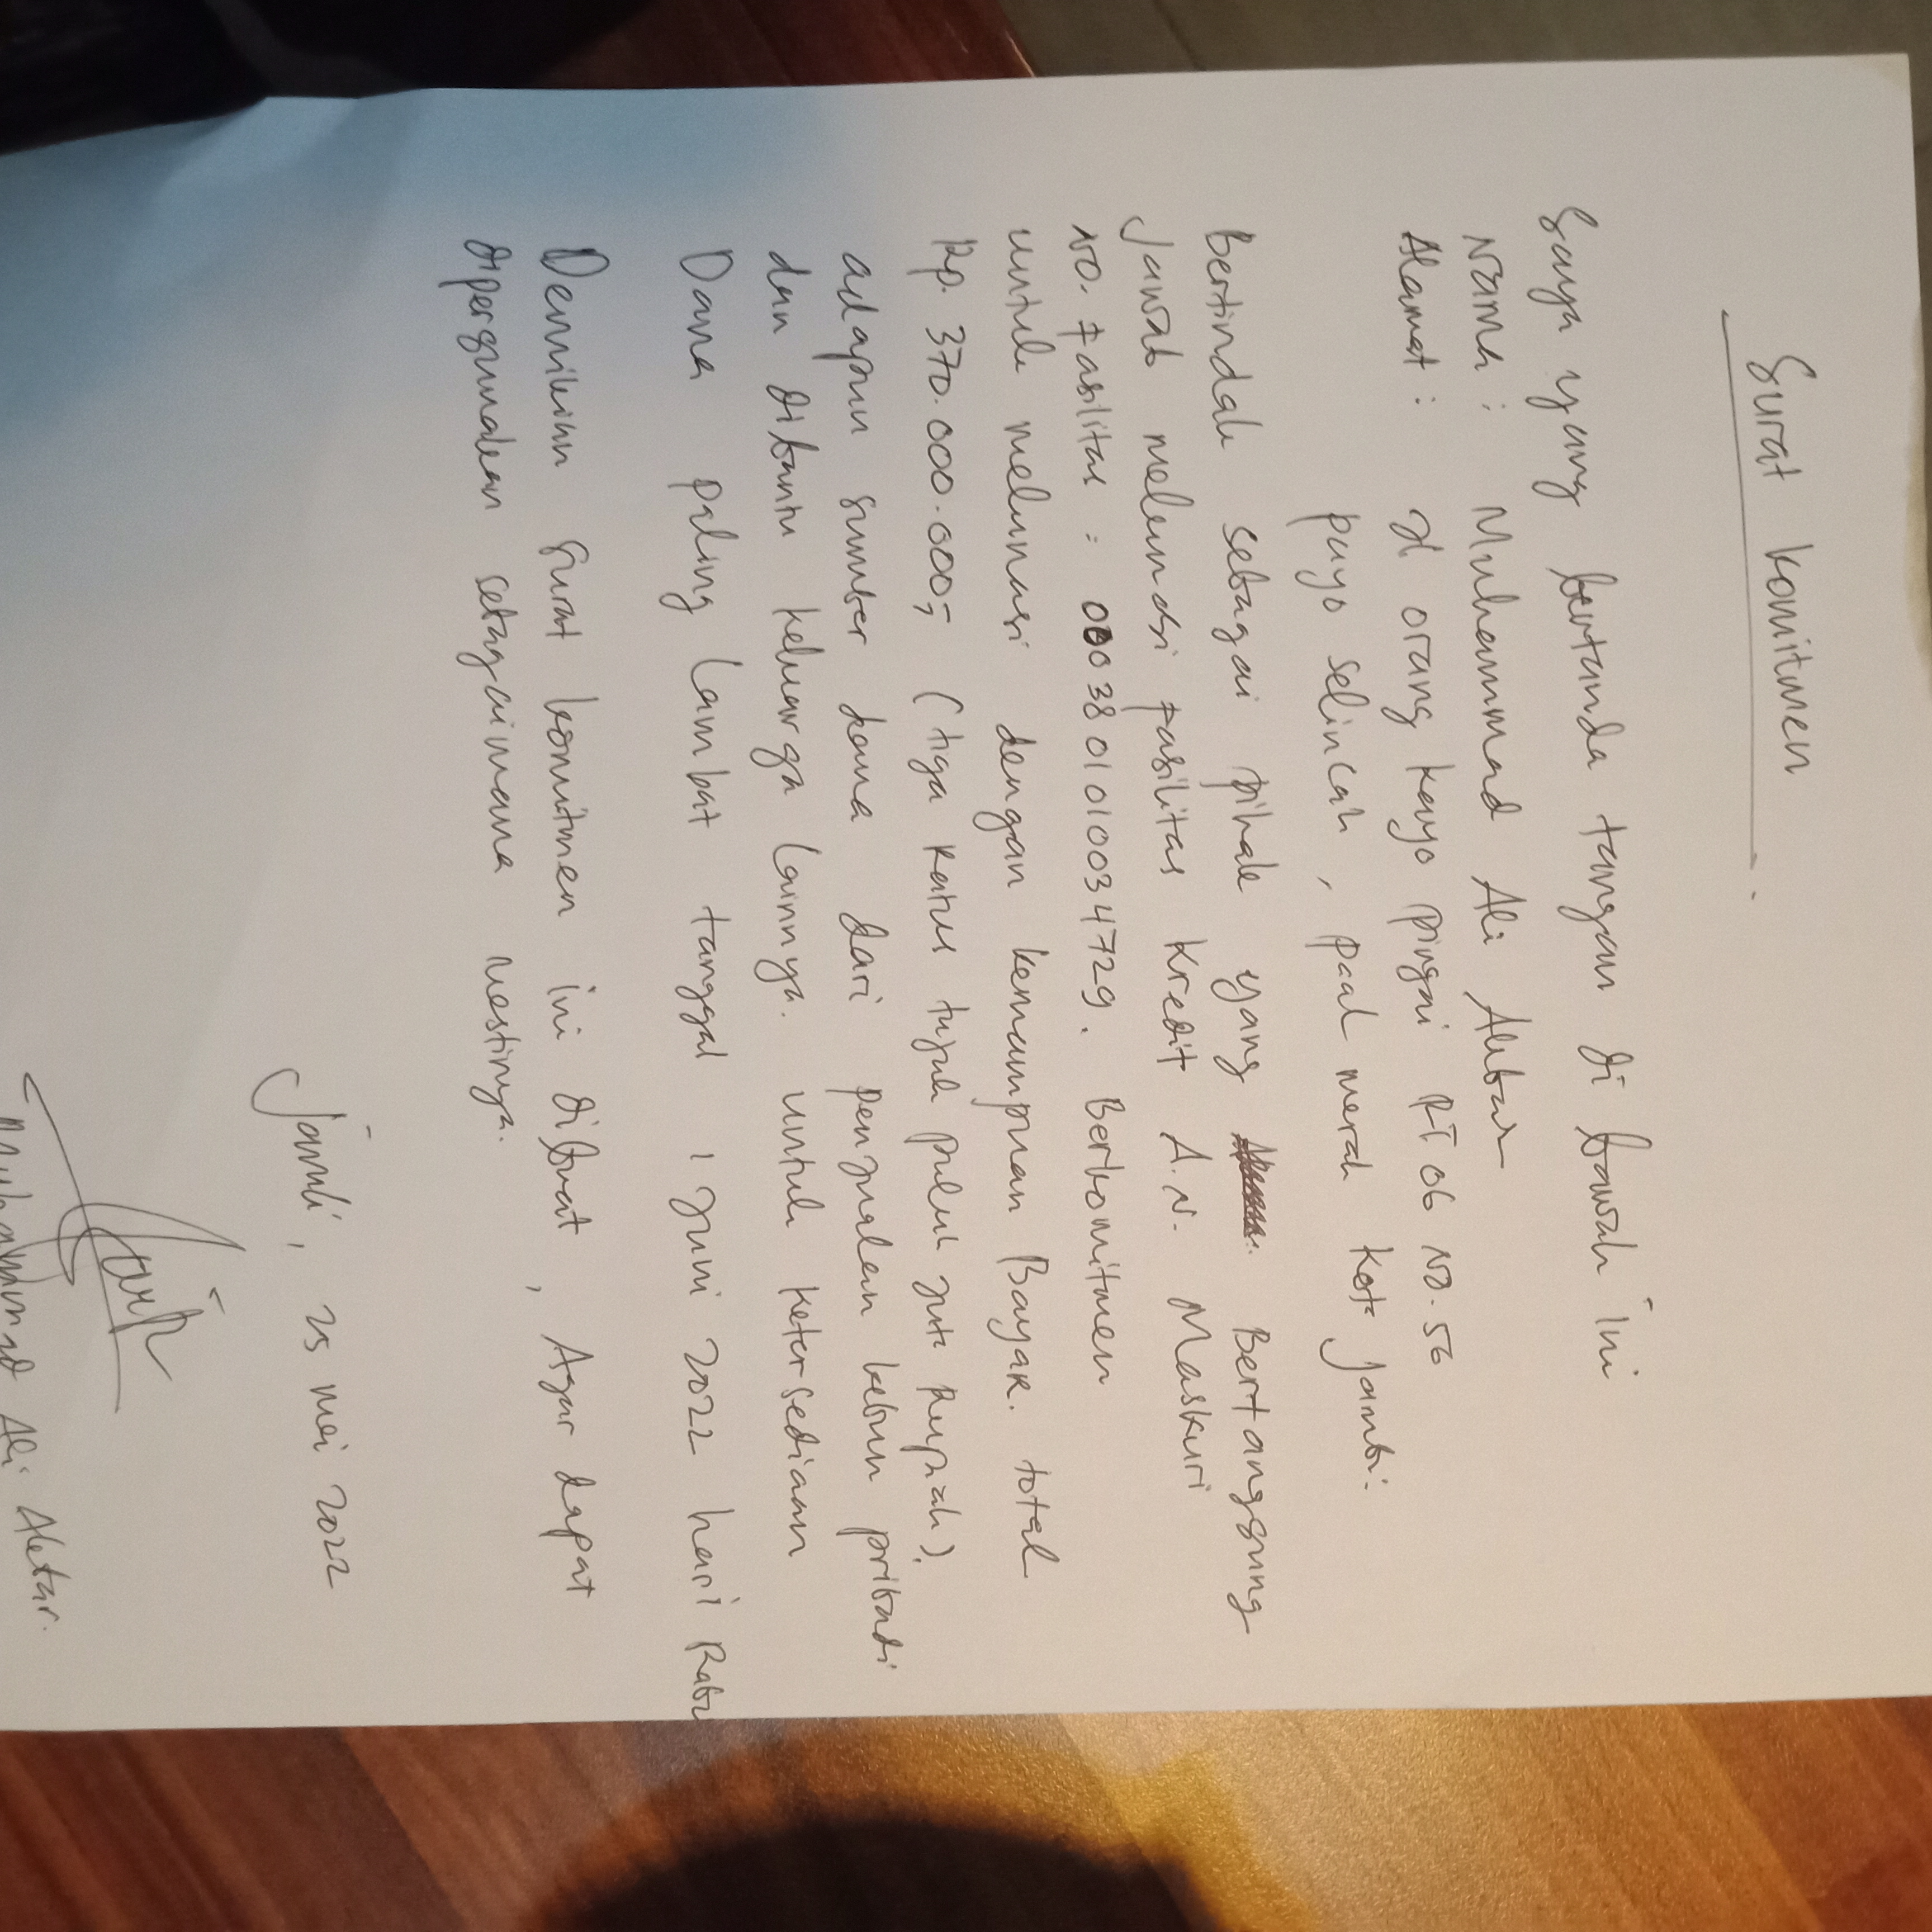 Surat Komitmen
Saya yang bertanda tangan di bawah ini
Nama : Muhammad Ali Akbar
Alamat : Jl orang kayo pingai RT 06 No. 56
payo selincah, paal merah Kota Jambi.
Bertindak sebagai pihak yang Bertangsung
Jawab melunasi fasilitas Kredit A.N. Maskuri
No. Fasilitas : 0003801010034729. Berkomitmen
untuk melunasi dengan kemampuan Bayar. total
Rp. 370.000.000,- (tiga ratus tujuh puluh juta Rupiah).
adapun sumber dana dari penjualan kebun pribadi
dan dibantu keluarga lainnya. untuk ketersediaan
Dana paling lambat tanggal 1 Juni 2022 hari Rabu
Demikian surat komitmen ini dibuat, Agar dapat
dipergunakan sebagaimana mestinya.
Jambi, 25 mei 2022
Muhammad Ali Akbar.